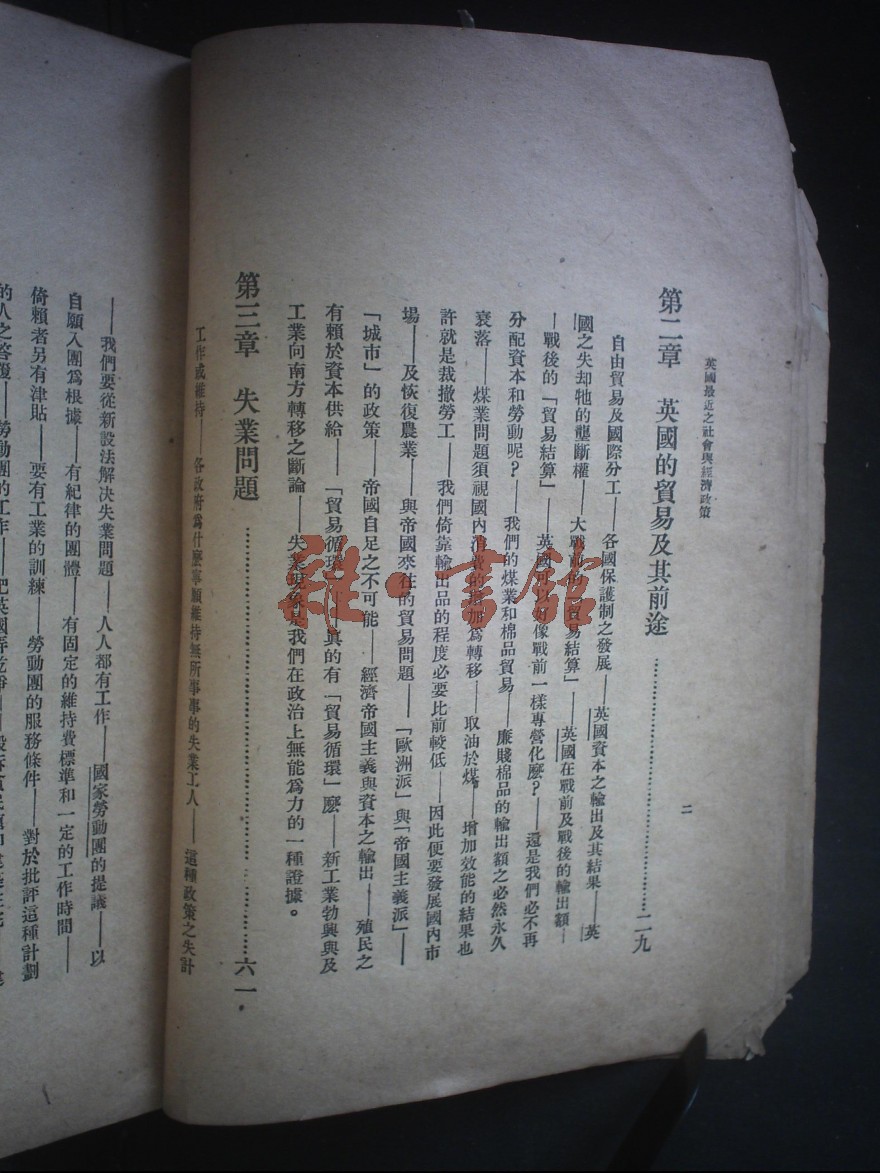 英國最近之社會與經濟政策
二
第二章　英國的貿易及其前途……二九
自由貿易及國際分工——各國保護制之發展——英國資本之輸出及其結果——英
國之失却牠的壟斷權——大戰前的「貿易結算」——英國在戰前及戰後的輸出額—
—戰後的「貿易結算」——英國可以好像戰前一樣專營化麽？——還是我們必不再
分配資本和勞動呢？——我們的煤業和棉品貿易——廉賤棉品的輸出額之必然永久
衰落——煤業問題須視國內消費的增加爲轉移——取油於煤——增加效能的結果也
許就是裁撤勞工——我們倚靠輸出品的程度必要比前較低——因此便要發展國內市
場——及恢復農業——與帝國來往的貿易問題——「歐洲派」與「帝國主義派」——
「城市」的政策——帝國自足之不可能——經濟帝國主義與資本之輸出——殖民之
有賴於資本供給——「貿易循環」真的有「貿易循環」麽——新工業勃興與及
工業向南方轉移之斷論——失業現象是我們在政治上無能爲力的一種證據。
第三章　失業問題……六一
工作或維持——各政府爲什麼寧願維持無所事事的失業工人——這種政策之失計
——我們要從新設法解决失業問題——人人都有工作——國家勞動團的提議——以
自願入團爲根據——有紀律的團體——有固定的維持費標準和一定的工作時間——
倚賴者另有津貼——要有工業的訓練——勞動團的服務條件——對於批評這種計劃
的人之答復——勞動團的工作——把英國弄乾淨——
雅·書館